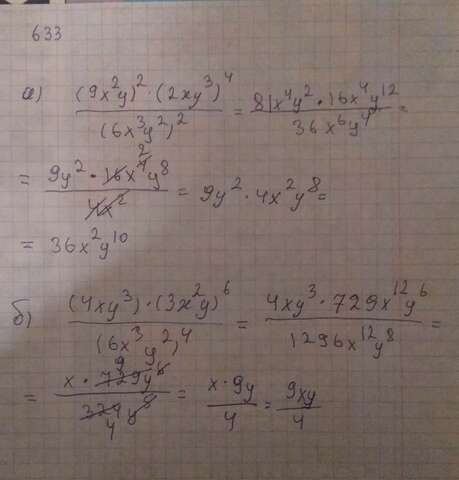 633
а) (9x²y)² · (2xy³)⁴ / (6x³y²)² = 81x⁴y² · 16x⁴y¹² / 36x⁶y⁴ =
= 9y² · 16x⁴y⁸ / 4x² = 9y² · 4x²y⁸ =
= 36x²y¹⁰
б) (4xy³) · (3x²y)⁶ / (6x³y²)⁴ = 4xy³ · 729x¹²y⁶ / 1296x¹²y⁸ =
= x · 729y⁶ / 324y⁵ = x · 9y / 4 = 9xy / 4